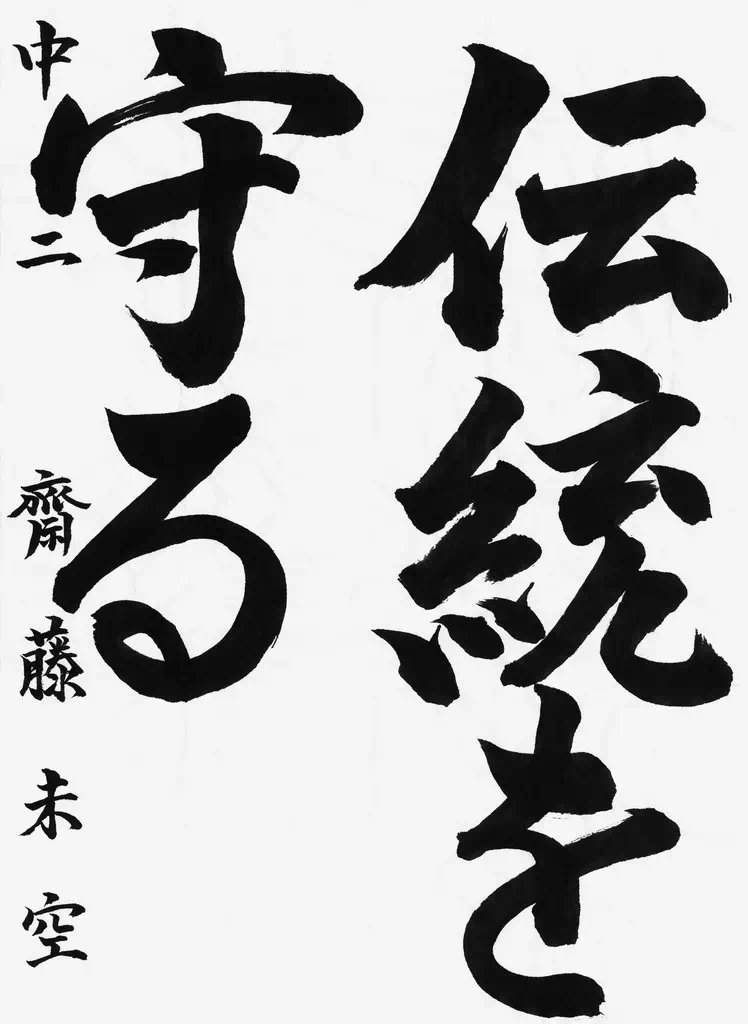 伝統を
守る
中二 齋藤未空